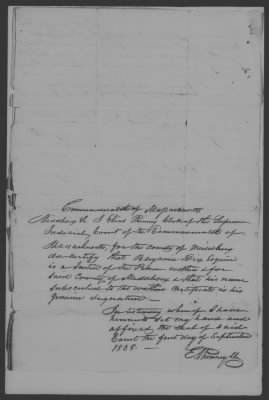 Commonwealth of Massachusetts
Middlesex Ss. I Elias Phinney Clerk of the Supreme
Judicial Court of the Commonwealth of
Massachusetts, for the County of Middlesex
do certify that Benjamin Dix Esquire
is a Justice of the Peace within & for
said County of Middlesex & that his name
subscribed to the within certificate is his
genuine signature —
In testimony whereof I have
hereunto set my hand and
affixed the Seal of said
Court the first day of September
1838 —
E. Phinney Clk